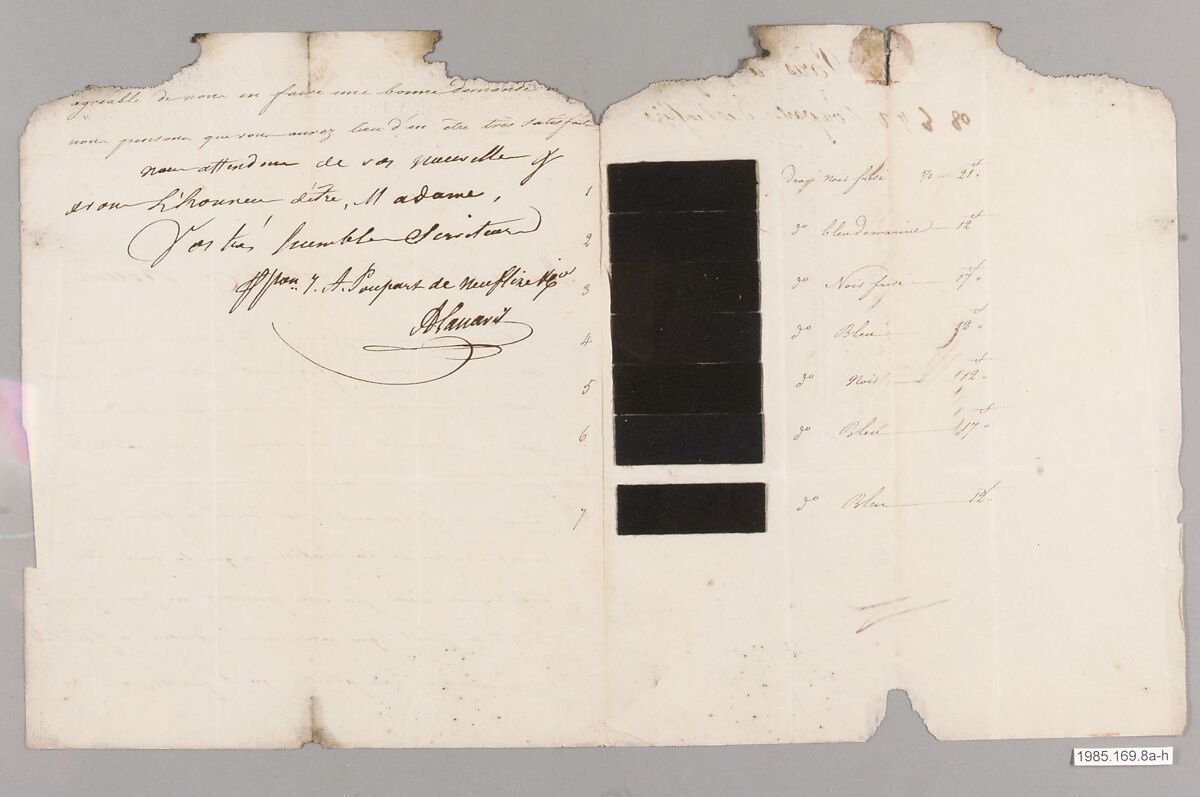 agreable de nous en faire une bonne demande
nous pensons que vous aurez lieu d'en être très satisfait
nous attendons de vos nouvelles &
avons L'honneur d'être, Madame,
Vos très humbles Serviteurs
pon J. A. Poupart de Neuflize & Cie
1 drap noir frisé 21
2 do bleu de marine 12
3 do Noir frisé 17
4 do Bleu 12
5 do Noir 12
6 do Bleu 17
7 do Bleu 12
1985.169.8a-h